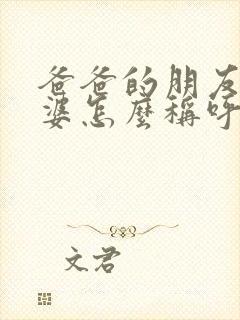 爸爸的朋友
婆怎麼稱呼
文君